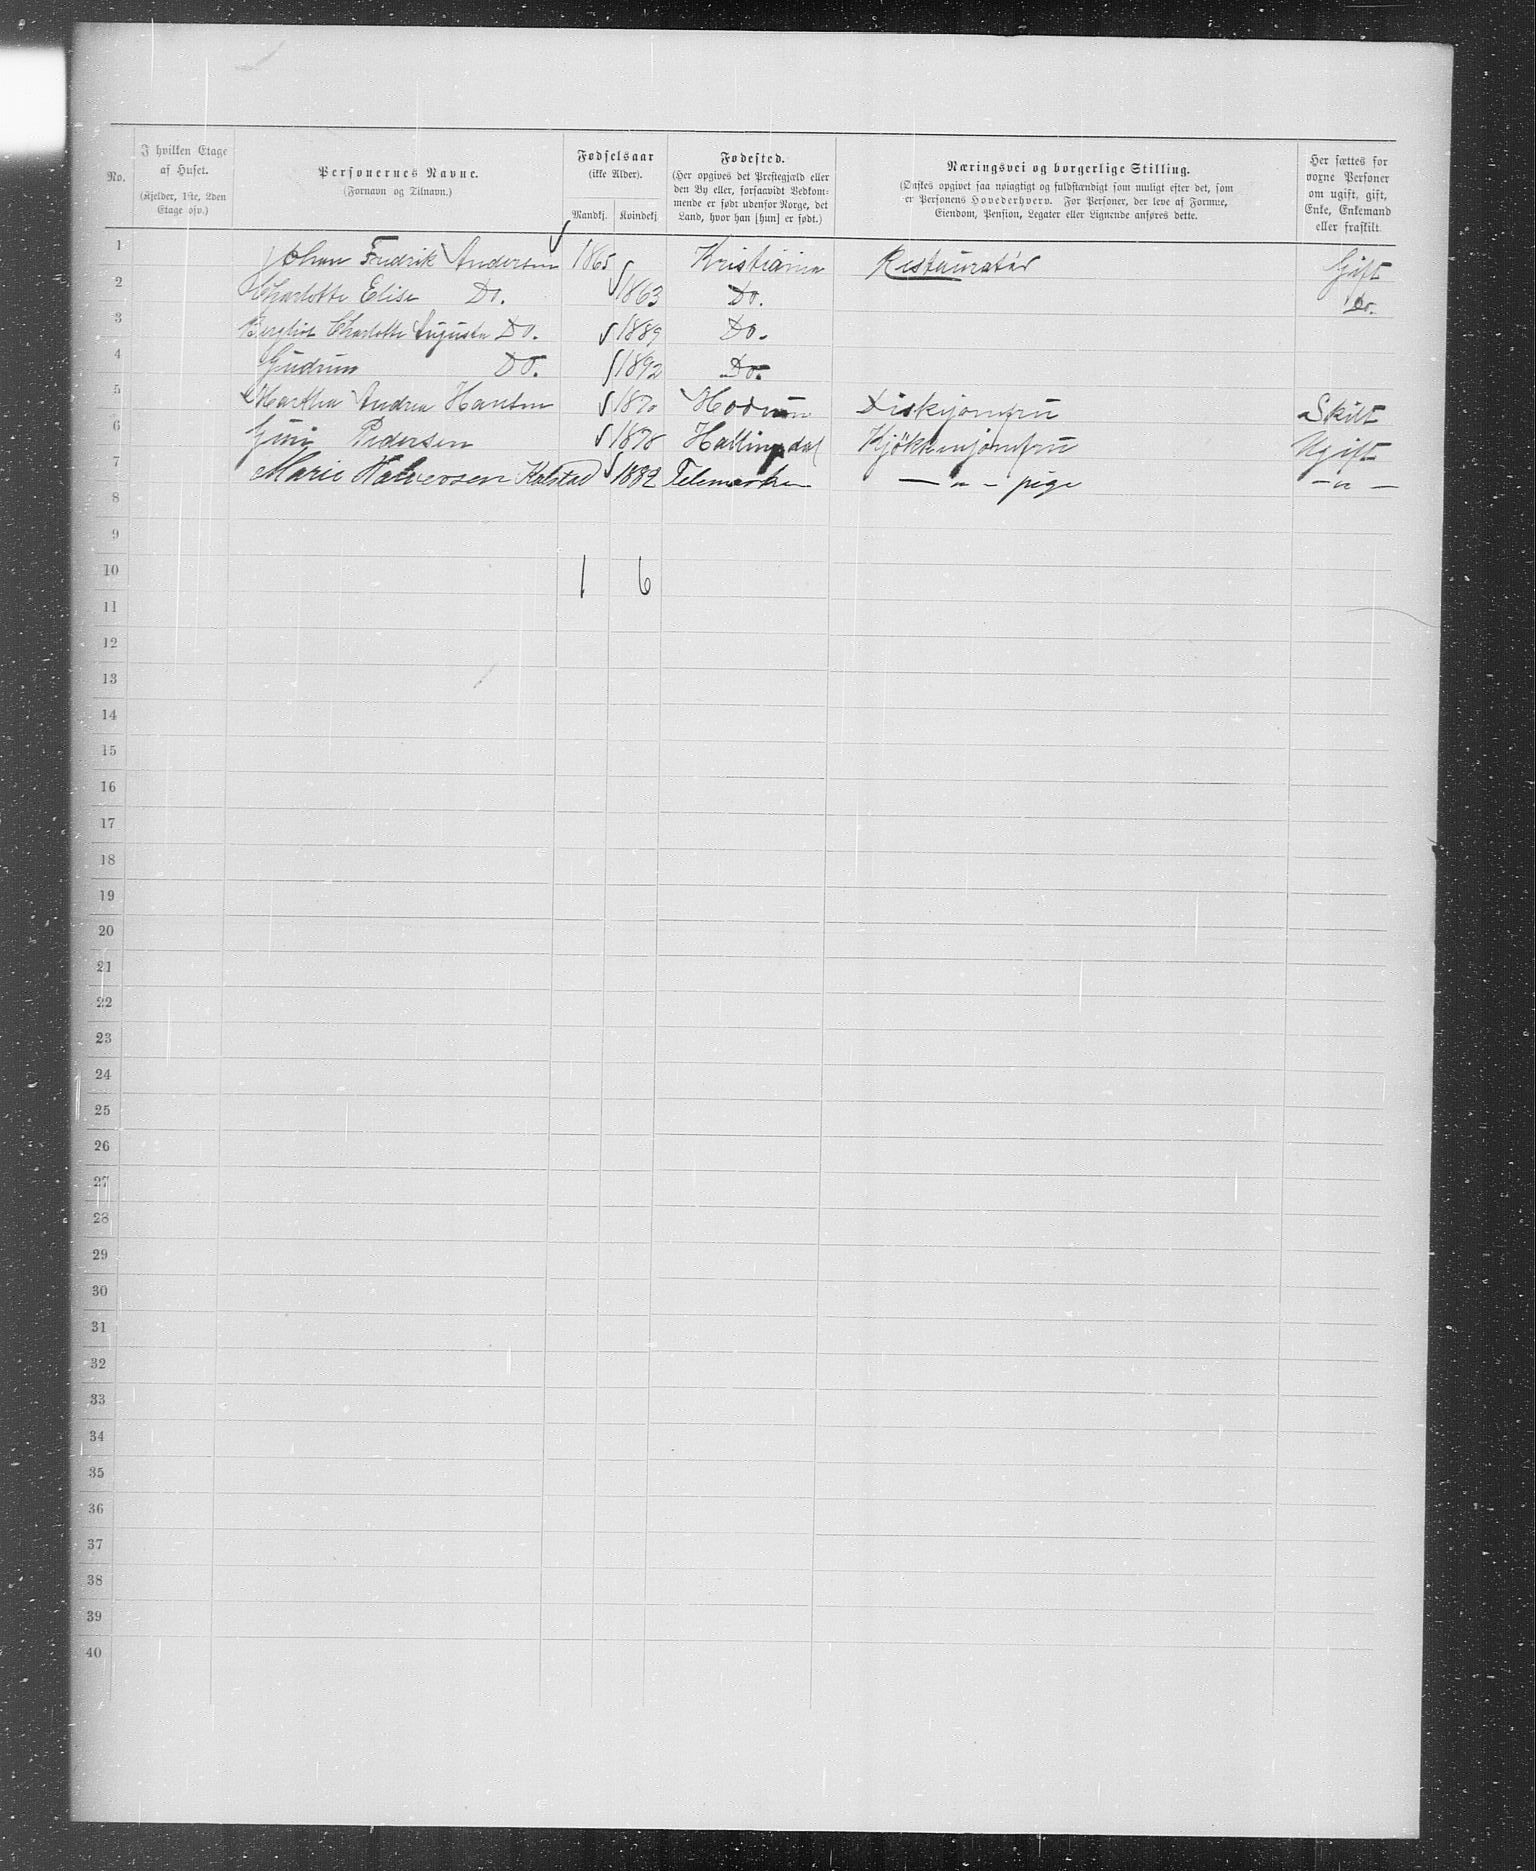 No.
I hvilken Etage
af Huset.
(Kjelder, 1ste, 2den
Etage osv.)
Personernes Navne.
(Fornavn og Tilnavn.)
Fødselsaar
(ikke Alder).
Mandkj. Kvindekj.
Fødested.
(Her opgives det Prestegjæld eller
den By eller, forsaavidt Vedkom-
mende er født udenfor Norge, det
Land, hvor han [hun] er født.)
Næringsvei og borgerlige Stilling.
(Ønskes opgivet saa nøiagtigt og fuldstændigt som muligt efter det, som
er Personens Hovederhverv. For Personer, der leve af Formue,
Eiendom, Pension, Legater eller Lignende anføres dette.
Her sættes for
voxne Personer
om ugift, gift,
Enke, Enkemand
eller fraskilt.
1 Johan Fredrik Andersen 1865 Kristiania Restauratør Gift
2 Charlotte Elise Do. 1863 Do. Do.
3 Bergliot Charlotte Augusta Do. 1889 Do.
4 Gudrun Do. 1892 Do.
5 Martha Andrea Hansen 1870 Modum Diskjomfru Skilt
6 Guri Pedersen 1878 Hallingdal Kjökkenjomfru Ugift
7 Marie Halversen Kalstad 1882 Telemarken — " - pige - " -
8
9
10 1 6
11
12
13
14
15
16
17
18
19
20
21
22
23
24
25
26
27
28
29
30
31
32
33
34
35
36
37
38
39
40